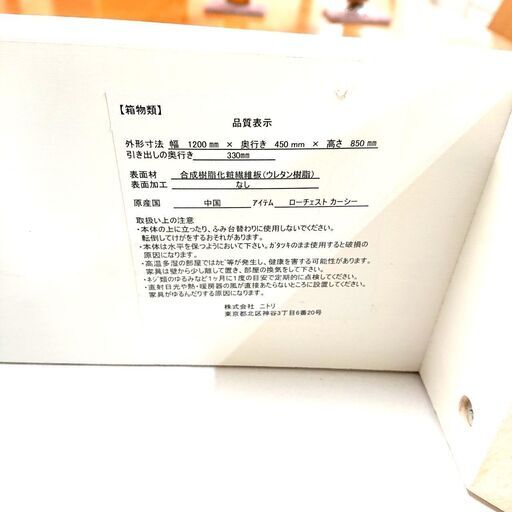 【箱物類】
品質表示
外形寸法 幅 1200mm × 奥行き 450mm × 高さ 850mm
引き出しの奥行き 330mm
表面材 合成樹脂化粧繊維板(ウレタン樹脂)
表面加工 なし
原産国 中国 アイテム ローチェスト カーシー
取扱い上の注意
・本体の上に立ったり、ふみ台替わりに使用しないでください。
転倒してけがをするおそれがあります。
・本体は水平を保つようにおいて下さい。ガタツキのまま使用すると破損の
原因になります。
・高温多湿の部屋ではカビ等が発生し、健康を害する可能性があります。
家具は壁から少し離して置き、部屋の換気をして下さい。
・ネジ類のゆるみなど1ヶ月に1度の目安で定期的に点検してください。
・直射日光や熱・暖房器の風が直接あたらないところに設置してください。
家具がゆるんだりする原因になります。
株式会社 ニトリ
東京都北区神谷3丁目6番20号